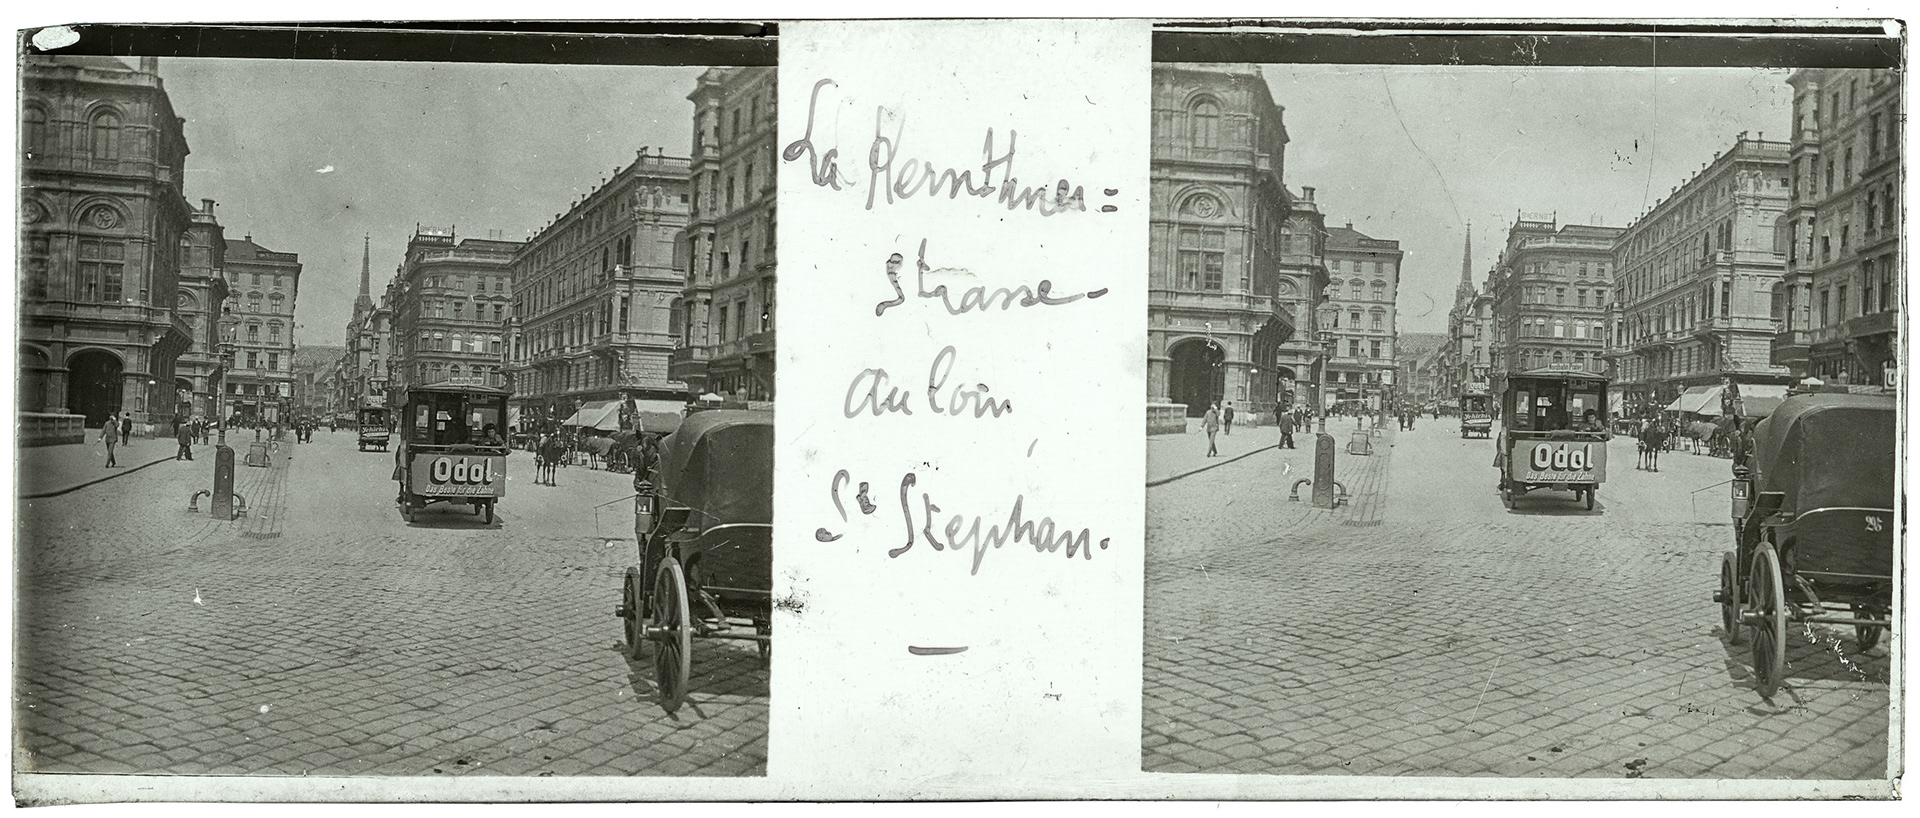 Odol
Das Beste für die Zähne
La Kernthner=
Strasse-
au loin
St Stephan.
—
Odol
Das Beste für die Zähne
295